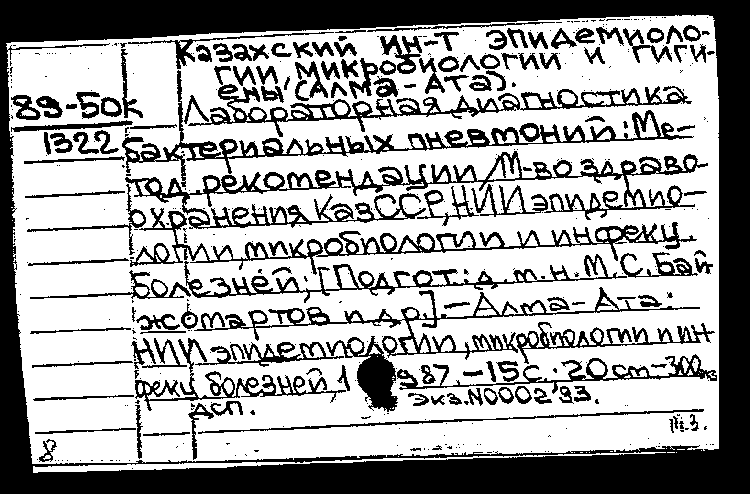 Казахский ин-т эпидемиоло-
гии, микробиологии и гиги-
ены (Алма-Ата).
89-50к
1322
Лабораторная диагностика
бактериальных пневмоний: Ме-
тод. рекомендации / М-во здраво-
охранения КазССР, НИИ эпидемио-
логии, микробиологии и инфекц.
болезней; [Подгот.: д.м.н. М.С. Бай-
жомартов и др.]. — Алма-Ата:
НИИ эпидемиологии, микробиологии и ин-
фекц. болезней, 1987. — 15 с.; 20 см — 300 экз
дсп. Экз. N0002'93.
8